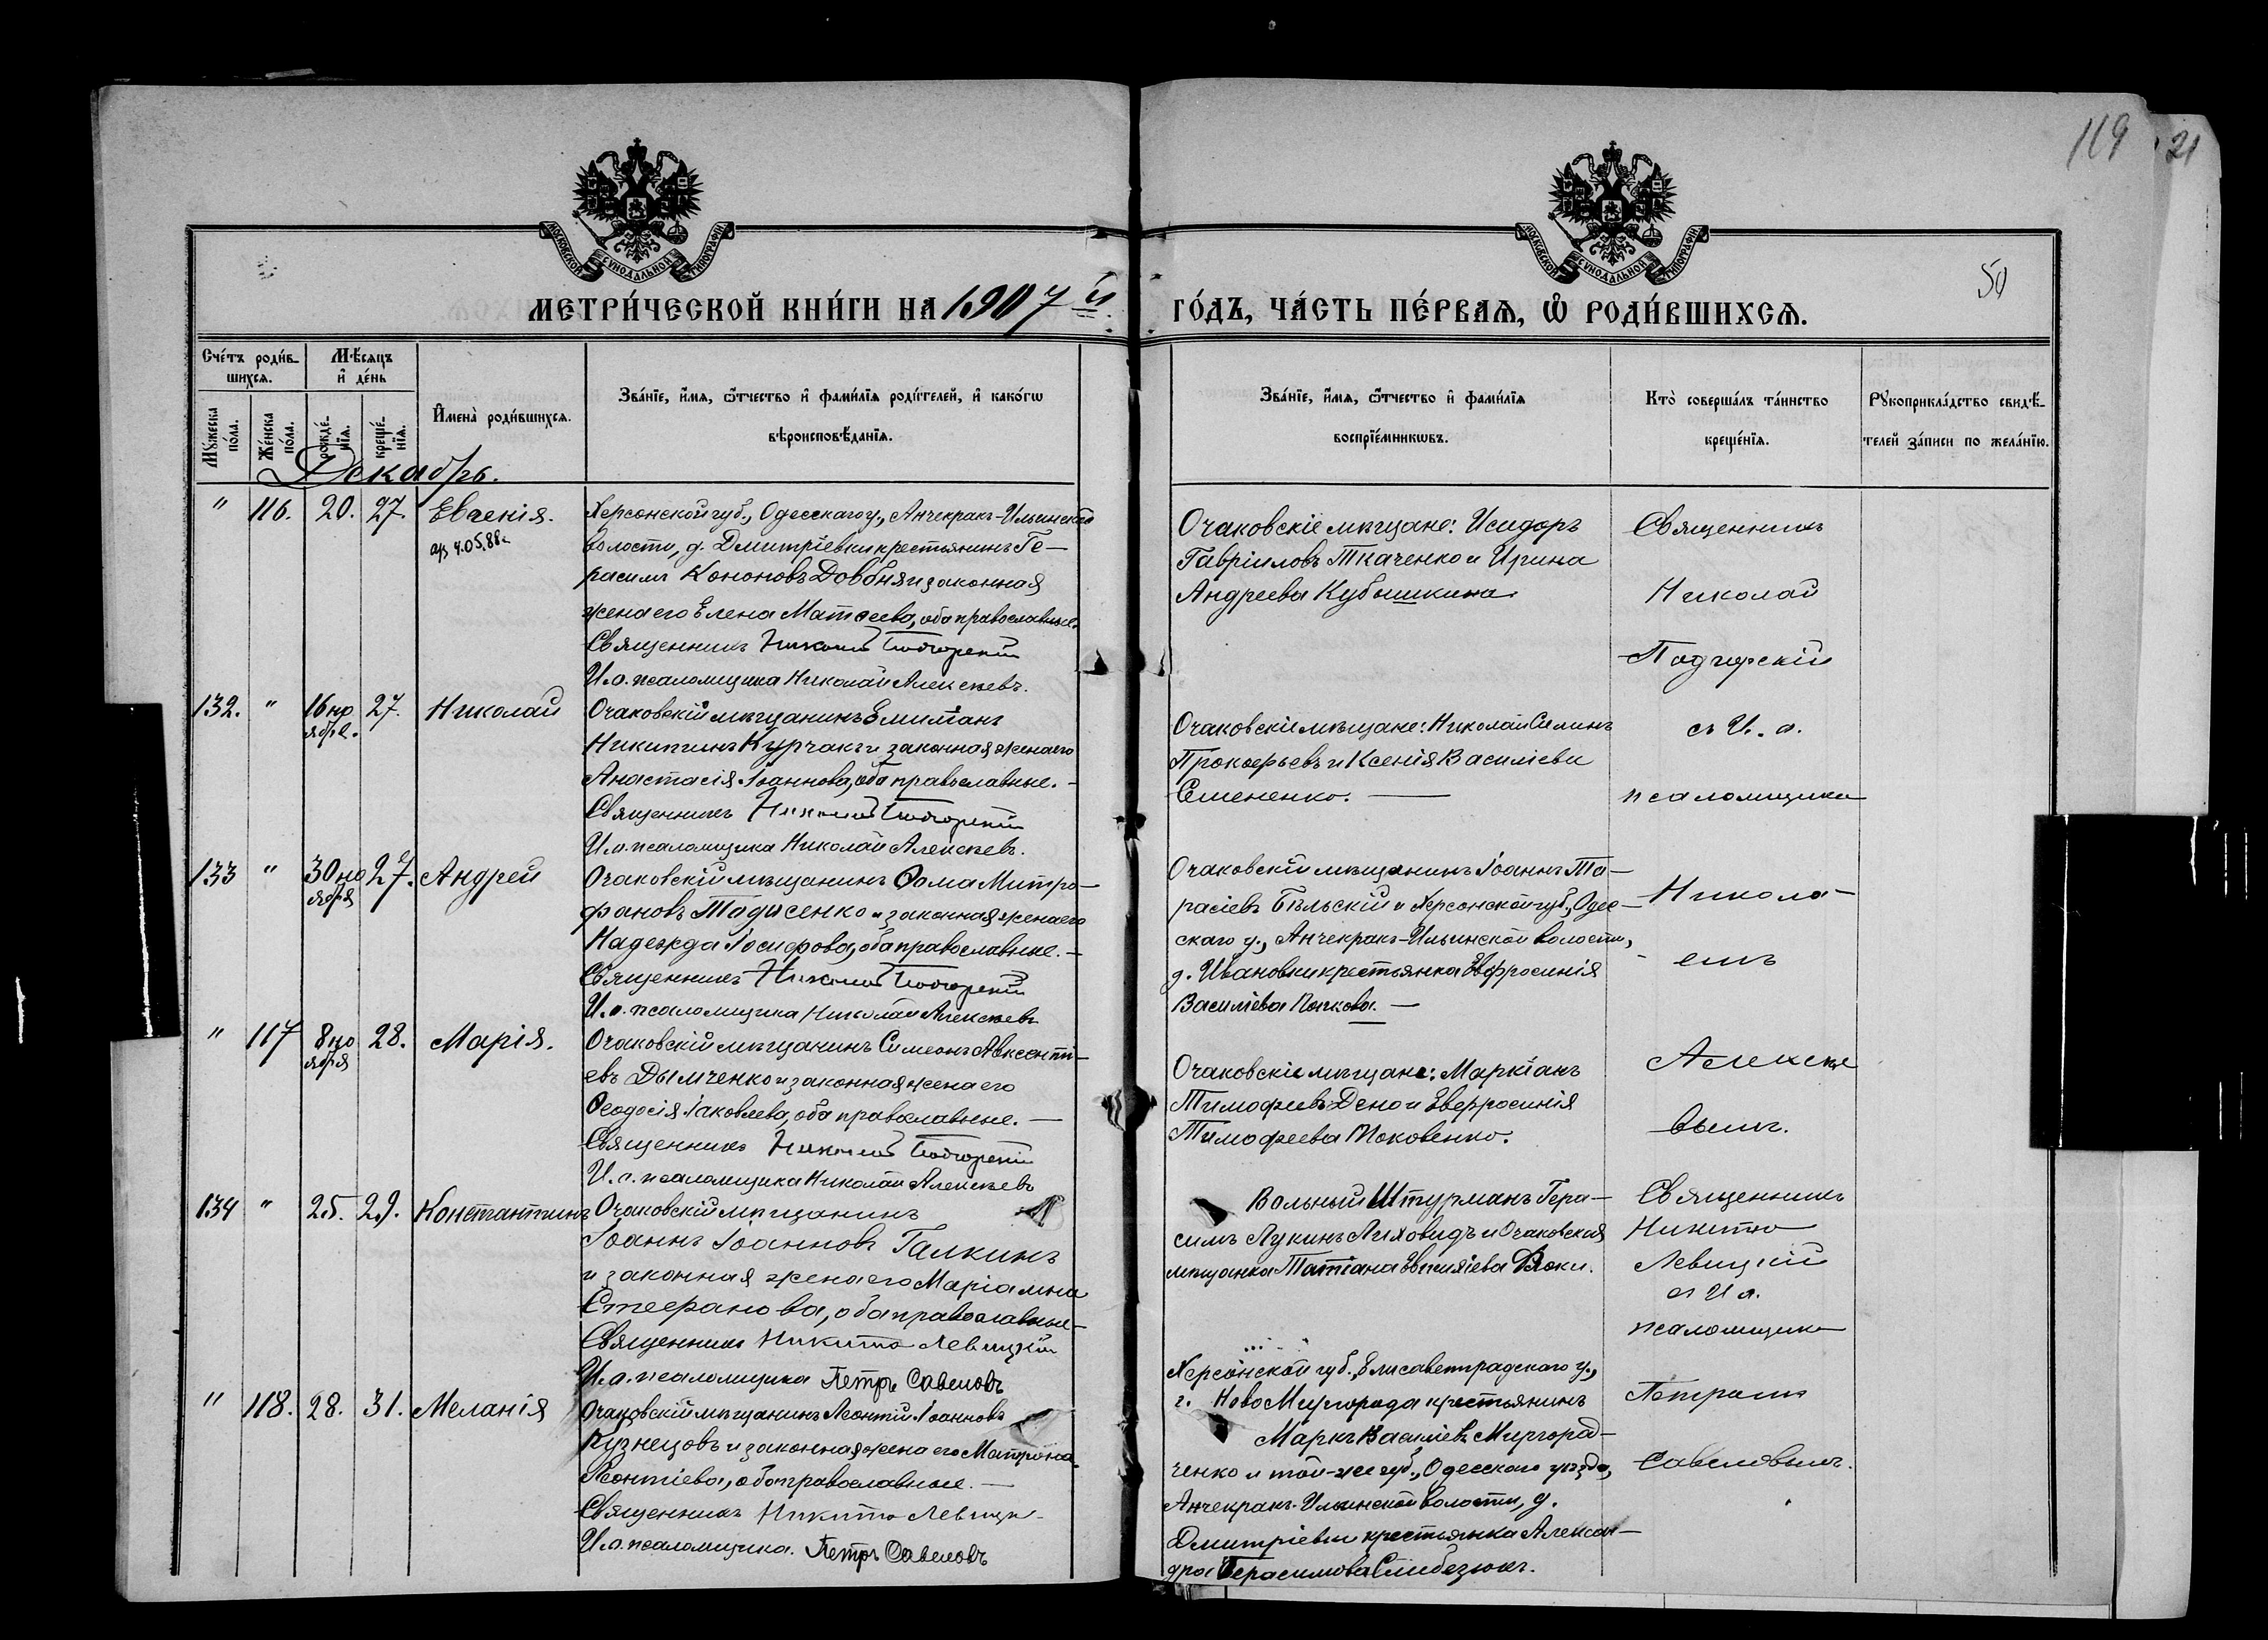 119
21
50
МОСКОВСКОЙ СѴНОДАЛЬНОЙ ТИПОГРАФІИ
МОСКОВСКОЙ СѴНОДАЛЬНОЙ ТИПОГРАФІИ
МЕТРИ́ЧЕСКОЙ КНИ́ГИ НА 1907 й
ГО́ДЪ, ЧА́СТЬ ПЕ́РВАѦ, Ѽ РОДИ́ВШИХСѦ.
Сче́тъ роди́в-
шихсѧ.
Мѣ́сѧцъ
и҆ де́нь
Мꙋ́жеска по́ла.
Же́нска по́ла.
рожде́-
нїѧ.
креще́-
нїѧ.
И҆мена̀ роди́вшихсѧ.
Зва́нїе, и҆́мѧ, ѻ҆́тчество и҆ фами́лїѧ роди́телей, и҆ како́гѡ
вѣроисповѣ́данїѧ.
Зва́нїе, и҆́мѧ, ѻ҆́тчество и҆ фами́лїѧ
воспрїе́мникѡвъ.
Кто̀ соверша́лъ та́инство
креще́нїѧ.
Рꙋкоприкла́дство свидѣ́-
телей за́писи по жела́нїю.
Декабрь.
" 116. 20. 27. Евгенія.
4.05.88г
Херсонской губ., Одесскаго у., Анчекрак-Ильинской
волости, д. Дмитріевки крестьянинъ Ге-
расим Кононовъ Довбня и законная
жена его Елена Матѳеева, оба православные.
Священникъ Николай Подгорскій
И. о. псаломщика Николай Алексѣевъ.
Очаковскіе мѣщане: Исидоръ
Гавріиловъ Ткаченко и Ирина
Андреева Кубышкина
Священникъ
Николай
Подгорскій
132. " 16 но
ября. 27. Николай
Очаковскій мѣщанинъ Емиліанъ
Никитинъ Курчакъ и законная жена его
Анастасія Іоаннова, оба православные. -
Священникъ Николай Подгорскій
И. о. псаломщика Николай Алексѣевъ.
Очаковскіе мѣщане: Николай Силинъ
Прокофьевъ и Ксенія Василіева
Семененко. —
съ И. о.
псаломщика
133 " 30 но
ября 27. Андрей
Очаковскій мѣщанинъ Ѳома Митро-
фановъ Тодисенко и законная жена его
Надежда Іосифова, оба православные. -
Священникъ Николай Подгорскій
И. о. псаломщика Николай Алексѣевъ
Очаковскій мѣщанинъ Іоаннъ Та-
расіевъ Бѣльскій и Херсонской губ., Одес-
скаго у., Анчекрак-Ильинской волости,
д. Ивановки крестьянка Евфросинія
Василіева
Никола-
емъ
" 117 8 но
ября 28. Марія.
Очаковскій мѣщанинъ Симеонъ Авксенті-
евъ Дымченко и законная жена его
Ѳеодосія Іаковлева, оба православные. —
Священникъ Николай Подгорскій
И. о. псаломщика Николай Алексѣевъ
Очаковскіе мѣщане: Маркіанъ
Тимофеевъ Дено и Евфросинія
Тимофеева Моковенко.
Алексѣе
вымъ.
134 " 25. 29. Константинъ
Очаковскій мѣщанинъ
Іоаннъ Іоанновъ Галкинъ
и законная жена его Маріамна
Стефанова, оба православные-
Священникъ Никита Левицкій
И. о. псаломщика Петръ Савеловъ
Вольный Штурманъ Гера-
симъ Лукинъ Лиховидъ и Очаковская
мѣщанка Татіана
Священникъ
Никита
Левицкій
съ И. о.
псаломщика
" 118. 28. 31. Меланія
Очаковскій мѣщанинъ Леонтій Іоанновъ
Кузнецовъ и законная жена его Матрона
Леонтіева, оба православные. —
Священникъ Никита Левицк-
И. о. псаломщика. Петръ Савеловъ
Херсонской губ., Елисаветградскаго у.,
г. Ново Миргорода крестьянинъ
Маркъ Василіевъ Миргород-
ченко и той-же губ., Одесскаго уѣзда,
Анчекрак-Ильинской волости, д.
Дмитріевки крестьянка Алексан-
дра Герасимова
Петромъ
Савеловымъ.